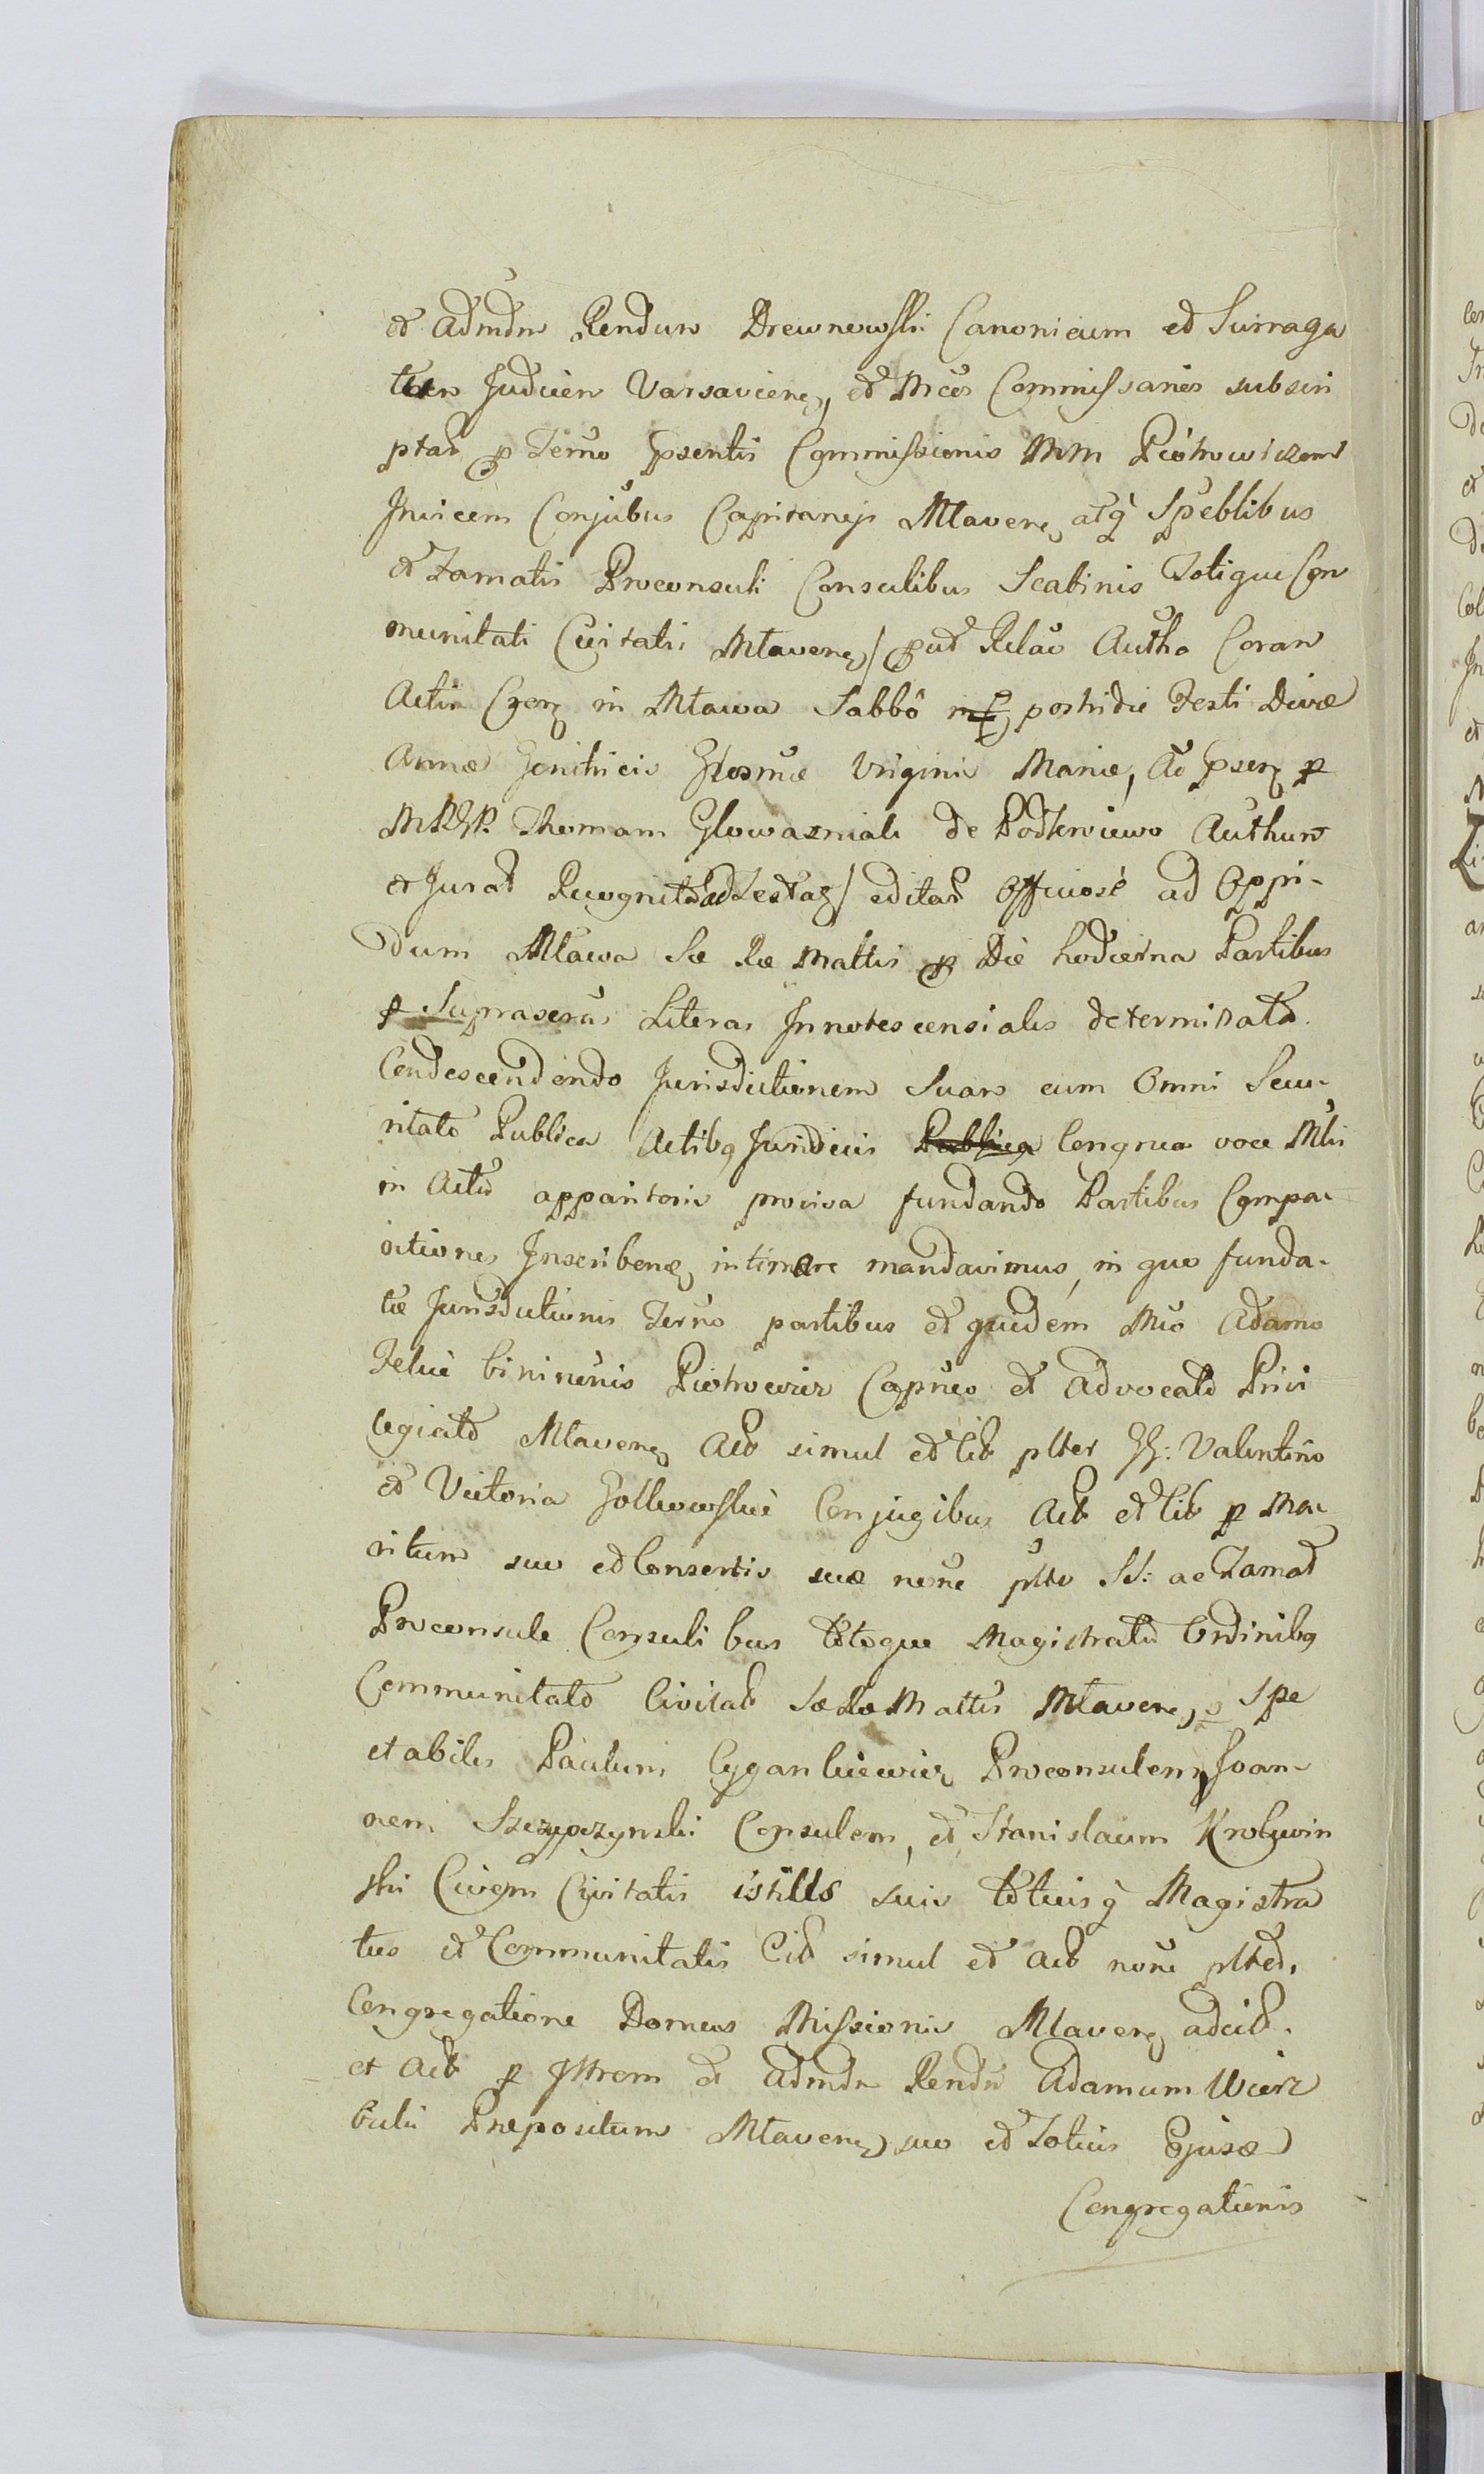 et Admdm Rendum Drewnowski Canonicum et Surroga
tum Judicem Varsavien, et Mcos Commissarios subscri
ptas p Termo psentis Commissionis MM Piotrowiczom
Invicem Conjubus Capitaneis Mlaven, atq Speblibus
et Famatis Proconsuli Consulibus Scabinis Totique Com
munitati Civitatis Mlaven / put Relao Autho Coram
Actis Czern in Mlawa Sabbo postridie Festi Divæ
Annæ Genitricis Glosmæ Virginis Mariæ, Ao psen p
Thomam Glowazniak de Podkrviewo Authum
et Jurat Recognit ad Lextaz / editas Officiose ad Oppi-
dum Mlawa Sæ Ræ Mattis p Die hodierna Partibus
p Suprascras Literas Innotescensiales determinato.
Condescendendo Jurisdictionem Suam cum Omni Secu-
ritate Publica Actibq Juridicis Publica Congrua voce Mlis
in Actu apparitoris provisa fundando Partibus Compa-
ritiones Inscribene, intimare mandavimus, in quo funda-
tæ Jurisdictionis Termo partibus et quidem Mco Adamo
Felici binimenis Piotrowicz Capneo et Advocato Privi
legiato Mlaven Act simul et Cit plter GG: Valentino
et Victoria Golkowskie Conjugibus Act et Cit p Ma-
ritum suo et Consortis suæ none plte SS: ac Famat
Proconsule Consulibus totoque Magistratu Ordinibq
Communitate Civitat Sæ Ræ Mattis Mlaven, p Spe
ctabiles Paulum Cygankiewicz Proconsulem, Joan-
nem Szczypczynski Consulem, et Stanislaum Krolywin
ski Civem Civitatis istius suis totiusq Magistra
tus et Communitatis Cit simul et Act none plted,
Congregatione Domus Missionis Mlaven adcit.
et Act p Jltrem et Admdm Rendu Adamum Wierz
bicki Prepositum Mlaven, suo et Totius Ejusæ
Congregationis